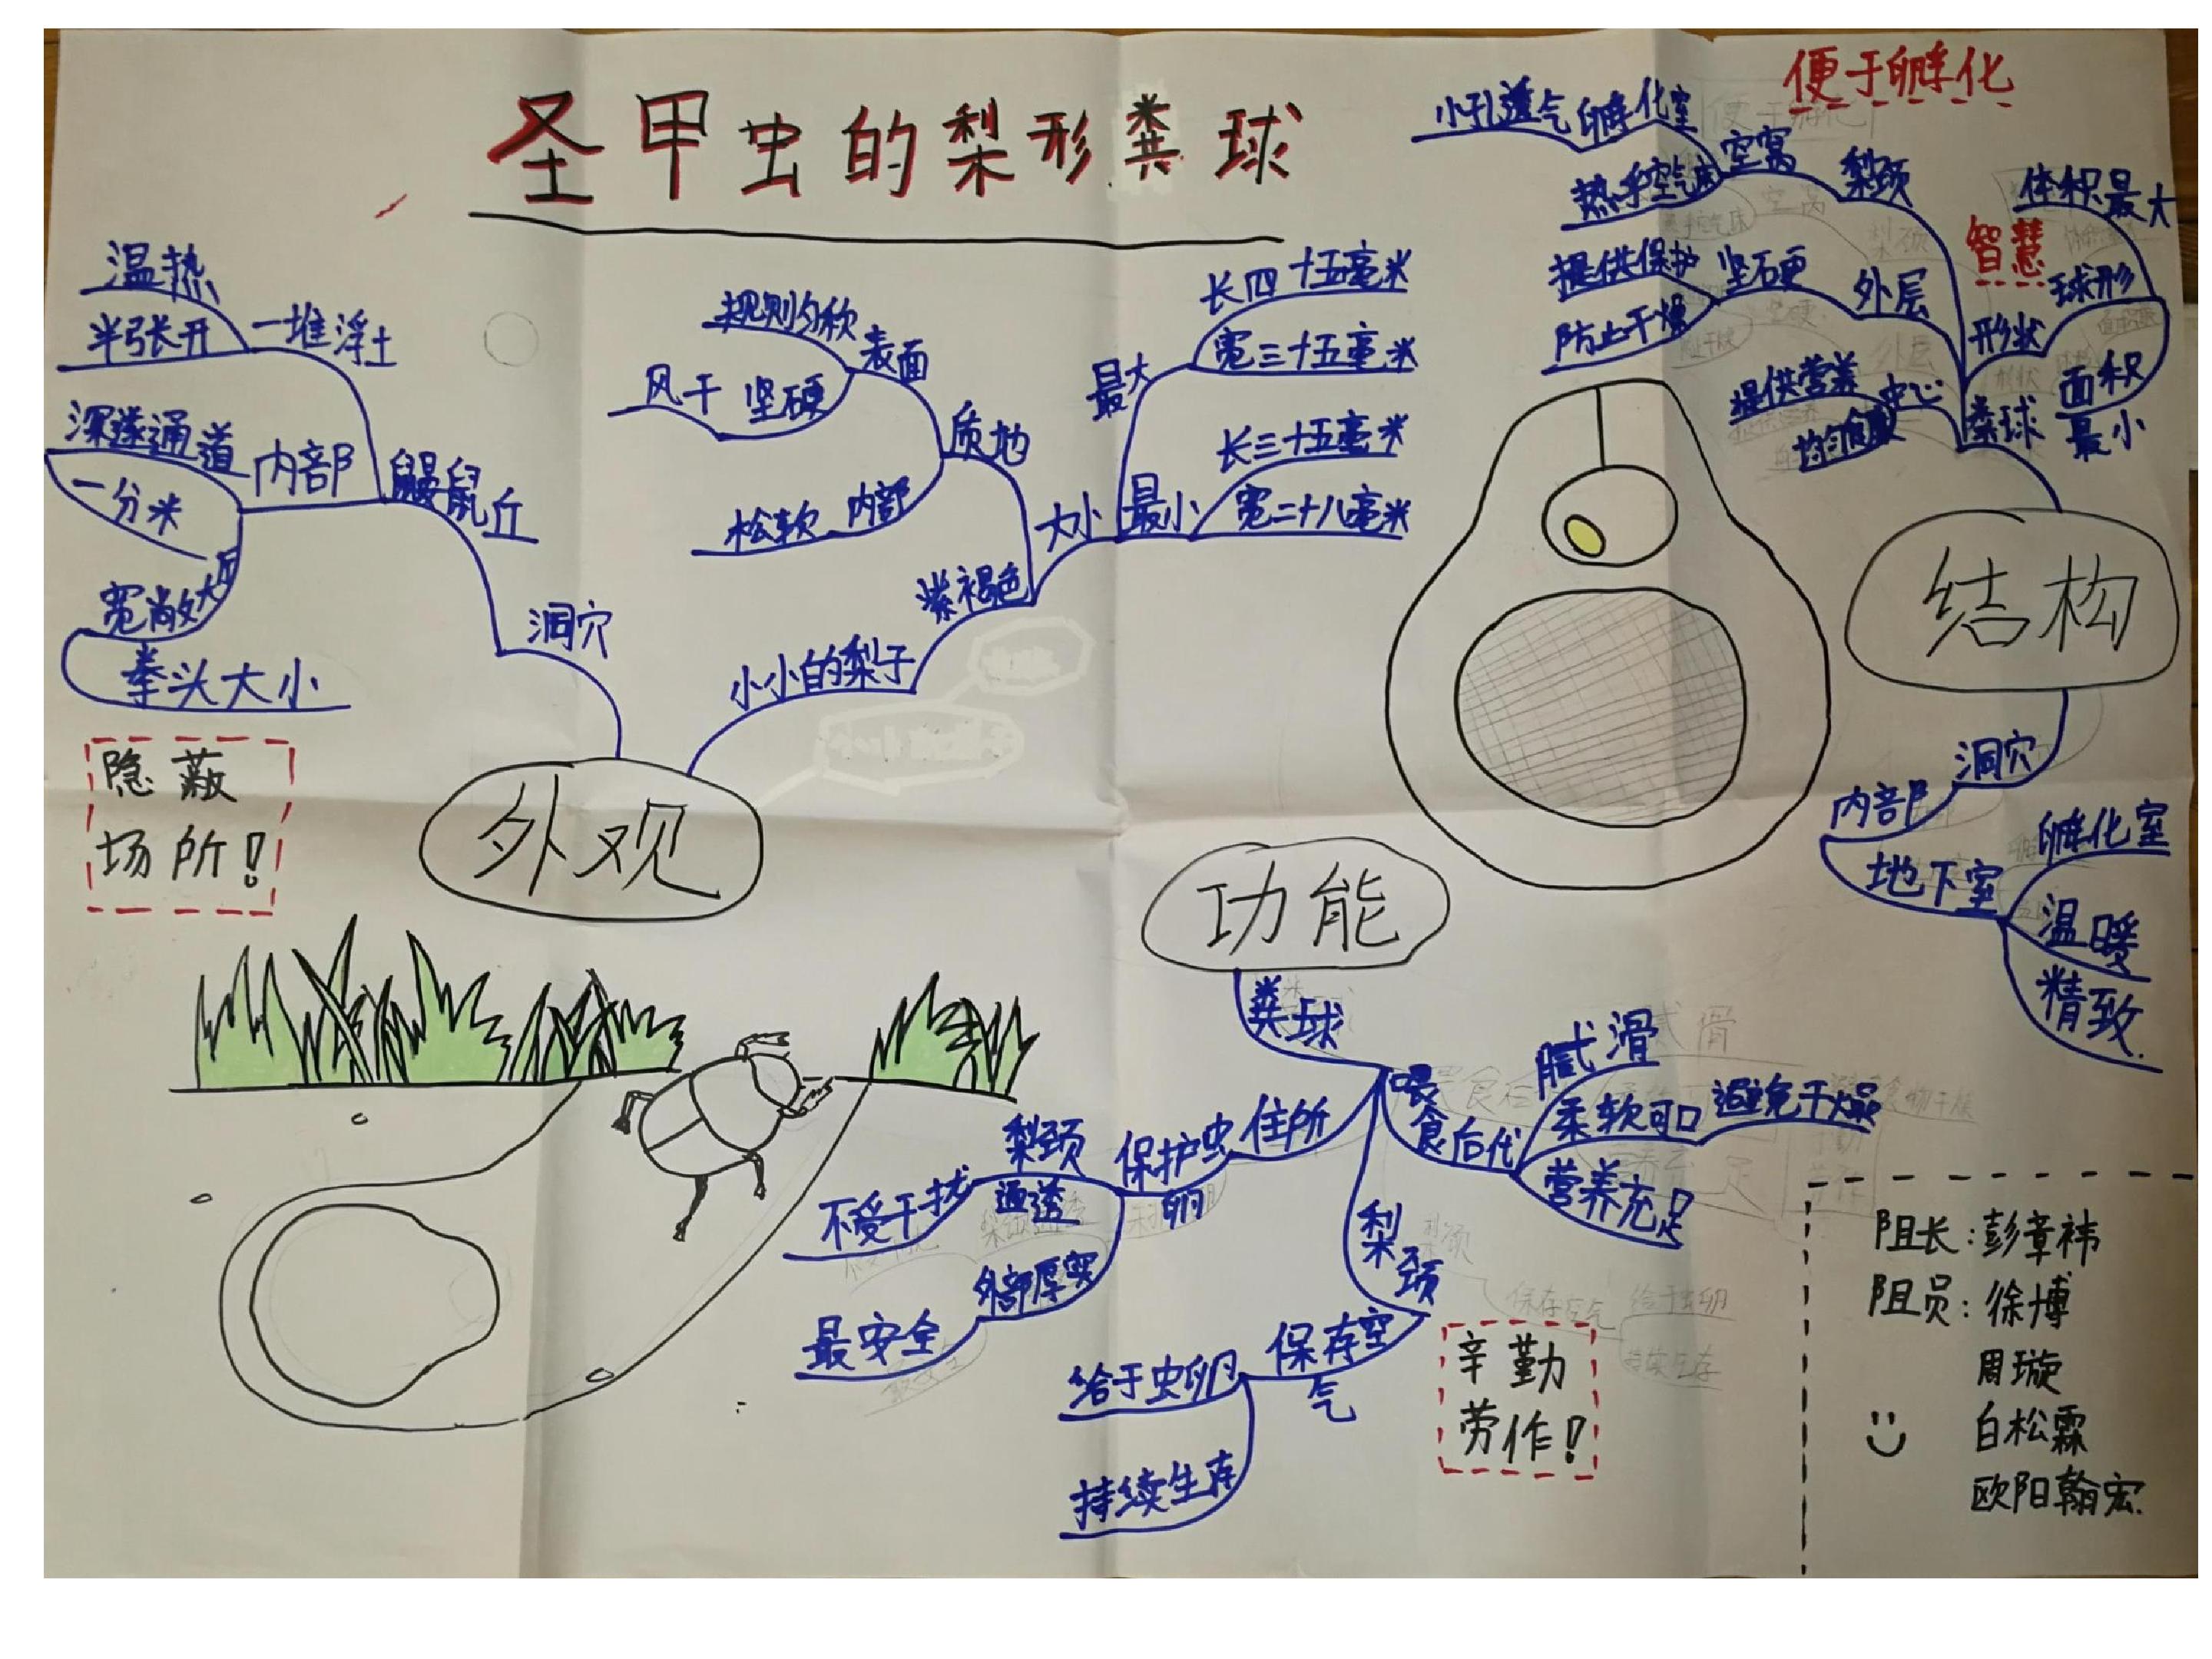 圣甲虫的梨形粪球
便于孵化
智慧
温热
半张开
一堆浮土
深邃通道
一分米
内部
宽敞大厅
拳头大小
鼹鼠丘
洞穴
隐蔽
场所!
外观
规则匀称
表面
风干 坚硬
质地
松软 内部
紫褐色
小小的梨子
大小
最大
长四十五毫米
宽三十五毫米
最小
长三十五毫米
宽二十八毫米
小孔透气 孵化室
热乎空气
空窝
梨颈
提供保护
防止干燥
坚硬
外层
提供营养
中心
体积最大
球形
形状
面积
最小
粪球
结构
洞穴
内部
地下室
孵化室
温暖
精致
功能
粪球
喂食后代
腻滑
柔软可口
避免干燥
营养充足
住所
保护虫卵
梨颈
通透
不受干扰
外部厚实
最安全
梨颈
保存空气
给于虫卵
持续生存
辛勤
劳作!
阻长:彭章祎
阻员:徐博
周璇
白松霖
欧阳翰宏